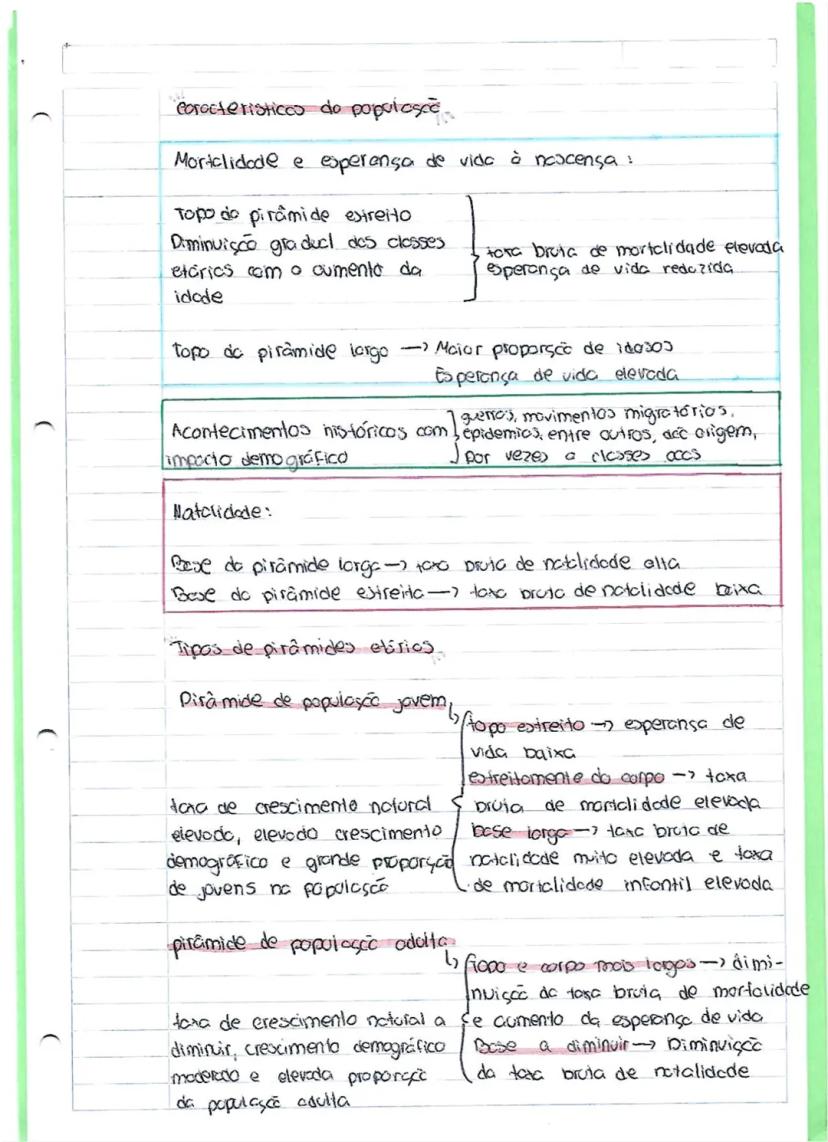 Características da população
Mortalidade e esperança de vida à nascensa :
Topo da pirâmide estreito
Diminuição gradual das classes
etárias com o aumento da
idade
taxa bruta de mortalidade elevada
esperança de vida reduzida
topo da pirâmide largo → Maior proporsão de idosos
Esperança de vida elevada
Acontecimentos históricos com
impacto demográfico
guerras, movimentos migratórios,
epidemias, entre outros, dão origem,
por vezes a classes ocas
Natalidade:
Base da pirâmide larga → taxa bruta de natalidade alta
Base da pirâmide estreita → taxa bruta de natalidade baixa
Tipos de pirâmides etárias
Pirâmide de população jovem
topo estreito → esperança de
vida baixa
estreitamento do corpo → taxa
bruta de mortalidade elevada
base larga → taxa bruta de
natalidade muito elevada e taxa
de mortalidade infantil elevada
taxa de crescimento natural
elevado, elevado crescimento
demográfico e grande proporção
de jovens na população
pirâmide de população adulta
topo e corpo mais largos → dimi-
nuição da taxa bruta de mortalidade
e aumento da esperança de vida
Base a diminuir → Diminuição
da taxa bruta de natalidade
taxa de crescimento natural a
diminuir, crescimento demográfico
moderado e elevada proporção
da população adulta